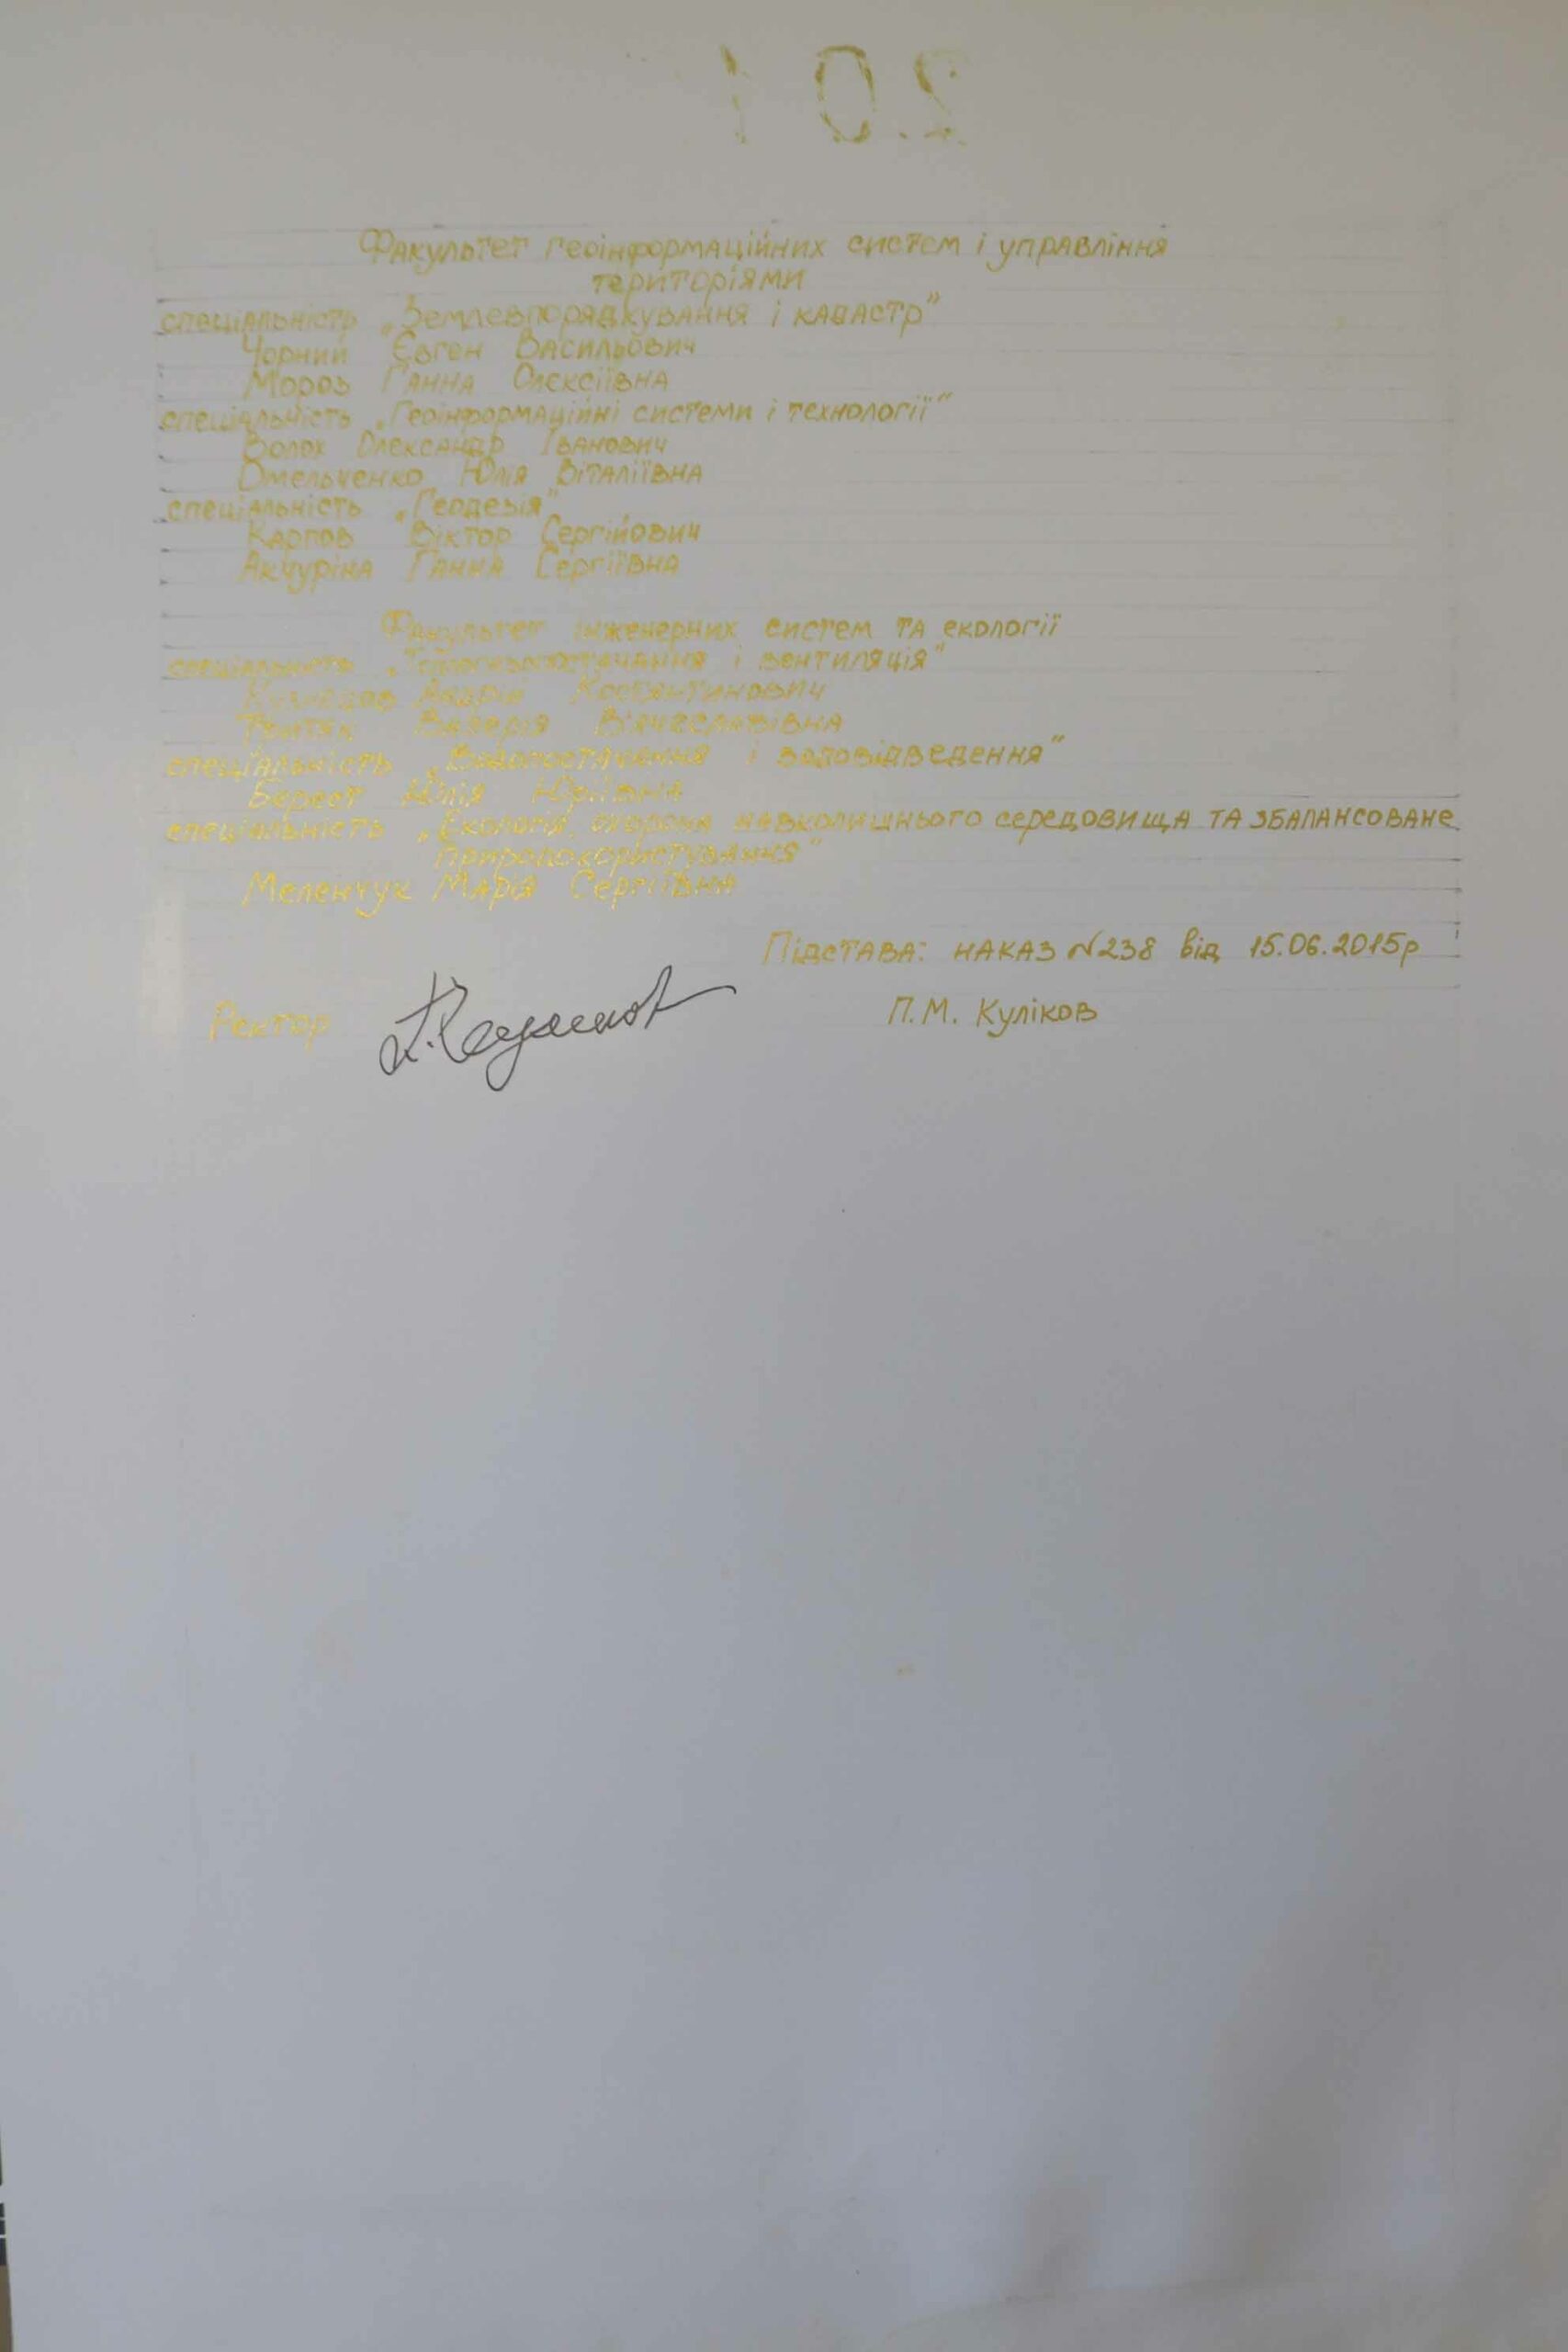 Факультет геоінформаційних систем і управління
територіями
спеціальність „Землевпорядкування і кадастр"
Чорний Євген Васильович
Мороз Ганна Олексіївна
спеціальність „Геоінформаційні системи і технології"
Волох Олександр Іванович
Омельченко Юлія Віталіївна
спеціальність „Геодезія"
Карпов Віктор Сергійович
Акчуріна Ганна Сергіївна
Факультет інженерних систем та екології
спеціальність „Теплогазопостачання і вентиляція"
Андрій Костянтинович
Валерія В'ячеславівна
спеціальність „Водопостачання і водовідведення"
Берест Юлія Юріївна
спеціальність „Екологія, охорона навколишнього середовища та збалансоване
природокористування"
Меленчук Марія Сергіївна
Підстава: наказ №238 від 15.06.2015р
Ректор П.М. Куліков